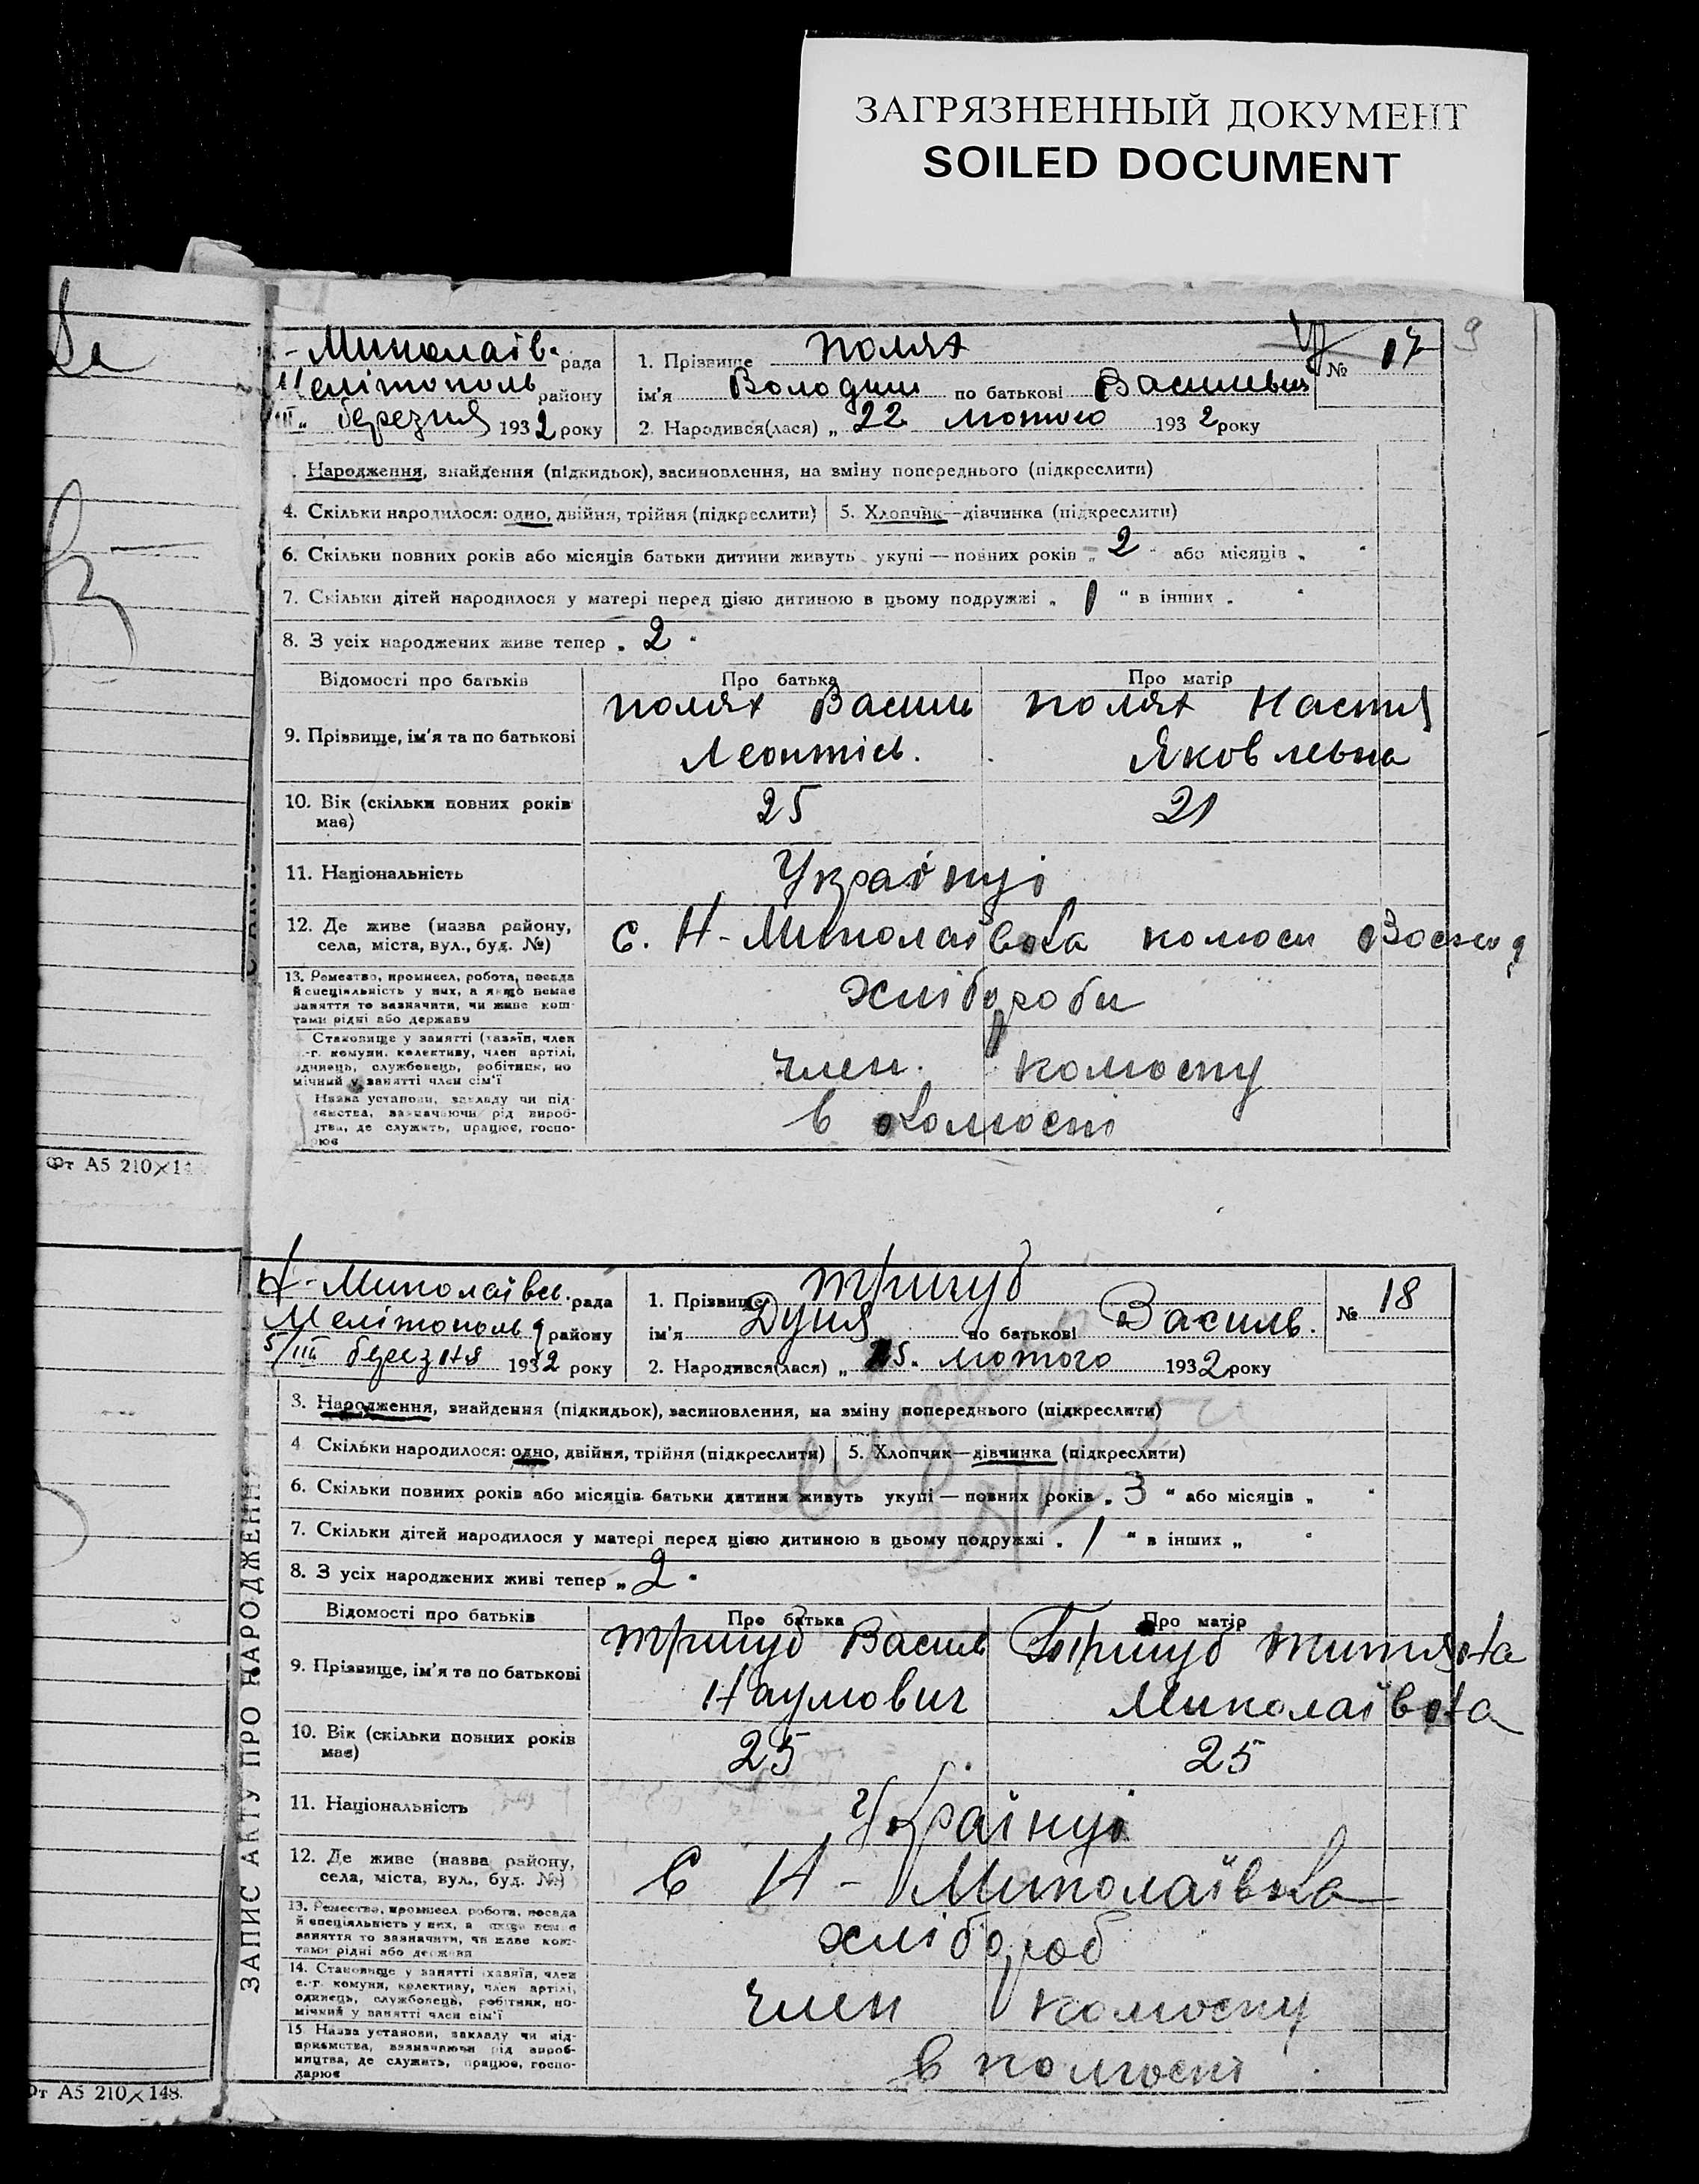 ЗАГРЯЗНЕННЫЙ ДОКУМЕНТ
SOILED DOCUMENT
9
- Миколаїв. рада
Мелітополь району
березня 1932 року
1. Прізвище Полях
№ 17
ім'я Володим по батькові Васильевич
2. Народився(лася) „ 22 лютого 1932 року
Народження, знайдення (підкидьок), засиновлення, на зміну попереднього (підкреслити)
4. Скільки народилося: одно, двійня, трійня (підкреслити) 5. Хлопчик—дівчинка (підкреслити)
6. Скільки повних років або місяців батьки дитини живуть укупі — повних років „ 2 “ або місяців „ “
7. Скільки дітей народилося у матері перед цією дитиною в цьому подружжі „ 1 “ в інших „ “
8. З усіх народжених живе тепер „ 2 “
Відомості про батьків Про батька Про матір
9. Прізвище, ім'я та по батькові
Полях Василь
Леонтієв.
Полях Настя
Яковлевна
10. Вік (скільки повних років
має)
25 21
11. Національність Українці
12. Де живе (назва району,
села, міста, вул., буд. №)
с. Н-Миколаївка колгосп Восход
13. Ремество, промисел, робота, посада
й спеціяльність у них, а якщо немає
заняття то зазначити, чи живе кош-
тами рідні або держави
хлібороби
Становище у занятті (хазяїн, член
-г. комуни, колективу, член артілі,
одинець, службовець, робітник, по
мічний у занятті член сім'ї
член колгоспу
Назва установи, закладу чи під-
ємства, зазначаючи рід вироб-
цтва, де служить, працює, госпо-
рює
в колгоспі
Фт А5 210×14
Н-Миколаївсь. рада
Мелітополь району
5/III березня 1932 року
1. Прізвище Тригуб
№ 18
ім'я Дуня по батькові Василь.
2. Народився(лася) „ 25. лютого 1932 року
3. Народження, знайдення (підкидьок), засиновлення, на зміну попереднього (підкреслити)
4 Скільки народилося: одно, двійня, трійня (підкреслити) 5. Хлопчик—дівчинка (підкреслити)
6. Скільки повних років або місяців батьки дитини живуть укупі — повних років „ 3 “ або місяців „ “
7. Скільки дітей народилося у матері перед цією дитиною в цьому подружжі „ 1 “ в інших „ “
8. З усіх народжених живі тепер „ 2 “
Відомості про батьків Про батька Про матір
9. Прізвище, ім'я та по батькові
Тригуб Василь
Наумович
Тригуб
Миколаївна
10. Вік (скільки повних років
має)
25 25
11. Національність Українці
12. Де живе (назва району,
села, міста, вул., буд. №)
С Н - Миколаївка
13. Ремество, промисел, робота, посада
й спеціяльність у них, а якщо немає
заняття то зазначити, чи живе кош-
тами рідні або держави
хлібороб
14. Становище у занятті (хазяїн, член
с.-г. комуни, колективу, член артілі,
одинець, службовець, робітник, по-
мічний у занятті член сім'ї
член колгоспу
15. Назва установи, закладу чи під-
приємства, зазначаючи рід вироб-
ництва, де служить, працює, госпо-
дарює
в колгоспі
ЗАПИС АКТУ ПРО НАРОДЖЕННЯ
Фт А5 210×148.